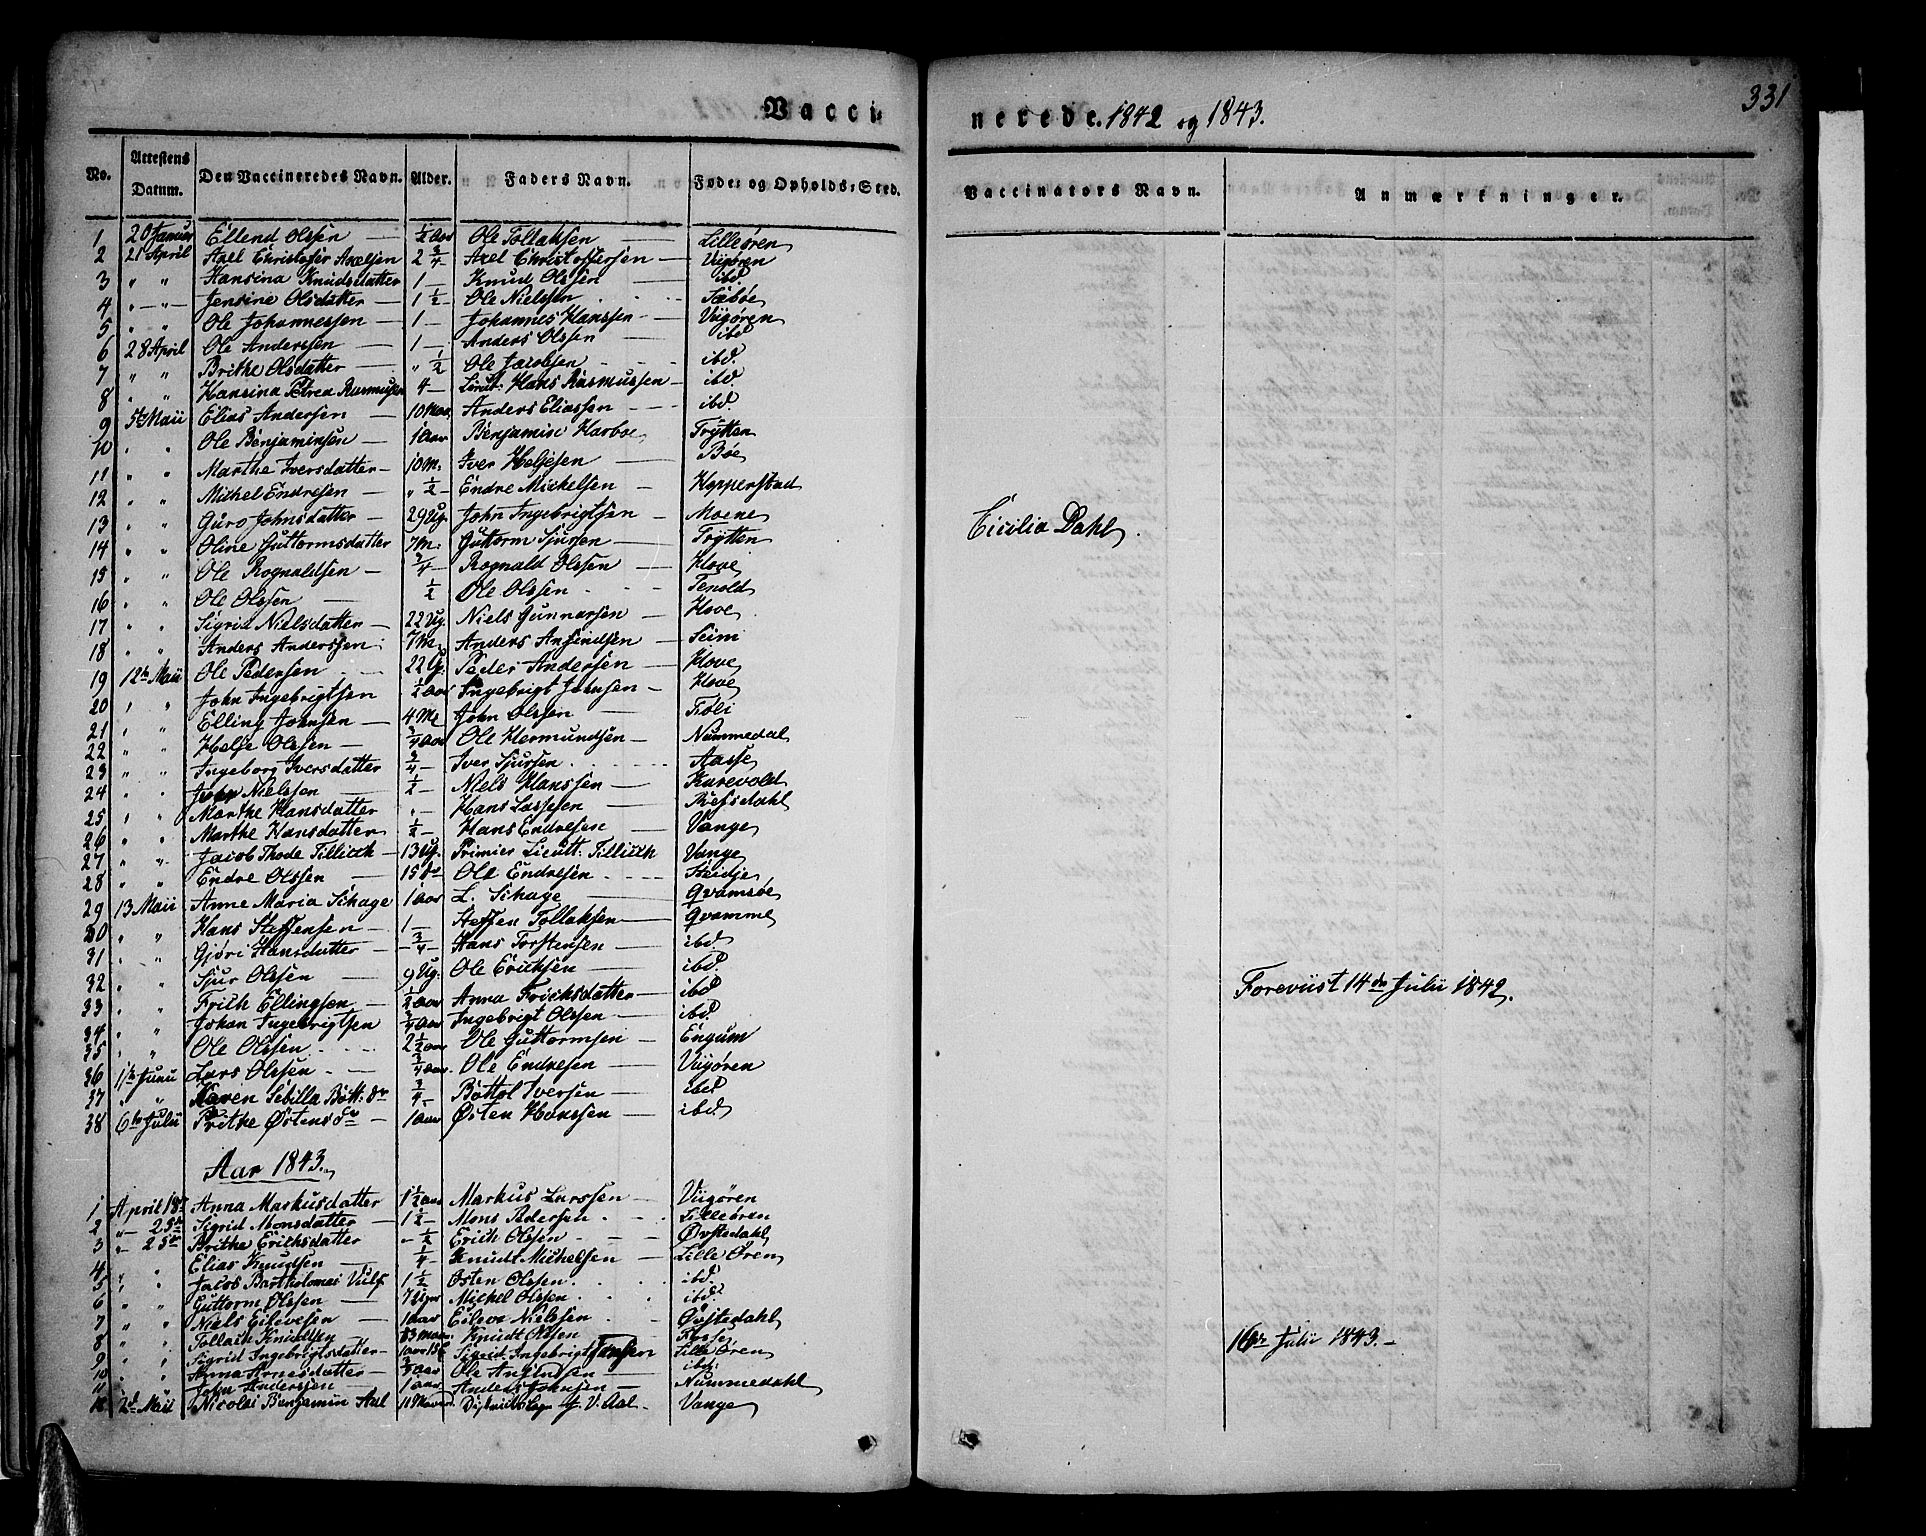 Vaccinerede. 1842 og 1843.
331
No. Attestens Datum. Den Vaccineredes Navn. Alder. Faders Navn. Føde- og Opholds-Sted. Vaccinators Navn. Anmærkninger.
1 20 Januar Ellend Olssen — ½ Aar Ole Tollaksen — Lilleøren
2 21 April Axel Christofer Axelsen 2 ¾ — Axel Christoffersen — Viigøren
3 " " Hansina Knudsdatter 1 — Knud Olssen — ibd.
4 " — " — Jensine Olsdatter — 1 ½ — Ole Nielssen Sæbøe
5 " " Ole Johannessen — 1 — Johannes Hanssen — Viigøren
6 28 April Ole Anderssen — 1 — Anders Olssen — ibd
7 " " Brithe Olsdatter — " ½ Ole Jacobsen ibd.
8 " " Hansina Petrea Rasmussen 4 — Lieut: Hans Rasmussen — ibd.
9 5te Maii Elias Andersen — 10 Maan. Anders Eliassen — ibd.
10 " " Ole Benjaminsen — 1 Aar Benjamin Harboe Trytten
11 " " Marthe Iversdatter — 10 M. Iver Heljesen — Bøe
12 " " Michel Endresen — " ½ — Endre Mickelsen — Hopperstad
13 " " Guro Johnsdatter — 29 Ug. John Ingebrigtsen — Moene
14 " " Oline Guttormsdatter 7 M. Guttorm Sjursen — Trytten
15 " " Ole Rognaldsen — ¾ — Rognald Olssen — Hove
16 " " Ole Olssen — ½ Ole Olssen Tenold
17 " " Sigrid Nielsdatter — 22 Ug. Niels Gunnarsen — Hove
18 " " Anders Anderssen 7 M. Anders Anfindsen — Seim
19 12te Maii Ole Pedersen 22 U. Peder Andersen — Hove
20 " " John Ingebrigtsen ½ Aar Ingebrigt Johnsen — Hove
21 " " Elling Johnsen — 4 M. John Olssen — Fioli
22 " " Helje Olssen — ¾ Aar Ole Hermundsen — Nummedal
23 " " Ingeborg Iversdatter ¾ — Iver Sjursen Aase
24 " " John Nielssen — ½ — Niels Hanssen — Kurevold
25 " " Marthe Hansdatter " — Hans Lassesen — Refsdahl
26 " " Marthe Hansdatter ½ — Hans Endresen — Vange
27 " " Jacob Thode Tillisch — 13 Ug. Primier Lieutt: Tillisch Vange
28 " " Endre Olssen — 15 do Ole Endresen Steidje
29 13 Maii Anne Maria Schage 1 Aar L. Schage — Qvamsøe
30 " " Hans Steffensen — 1 — Steffen Tollaksen — Qvamme
31 " " Gjøri Hansdatter — ¾ — Hans Torstensen — ibd.
32 " " Sjur Olssen — 9 Ug. Ole Ericksen — ibd.
33 " " Frich Ellingsen — ½ Aar Anna Frichsdatter — ibd
34 " " Johan Ingebrigtsen ¾ Aar Ingebrigt Olssen — ibd.
35 " " Ole Olssen 2 ½ Aar Ole Guttormsen — Engum
36 1ste Junii Lars Olssen — ¾ Aar. Ole Endresen — Viigøren
37 " " Karen Sebilla Bøtt: dr ¾ — Bøttol Iversen — ibd
38 6te Julii Brithe Østensdr — 1 Aar Østen Hanssen — ibd.
Cicilia Dahl.
Foreviist 14de Julii 1842.
Aar 1843.
1 April 18de Anna Markusdatter 1 ½ Aar Markus Larssen — Viigøren
2 " — 25de Sigrid Monsdatter — 1 ½ — Mons Pedersen Lilleøren
3 " — 25de Brithe Erichsdatter — ½ — Erich Olssen Øvstedahl
4 " " Elias Knudsen — ¼ — Knudt Michelsen — Lille Øren
5 " " Jacob Bartholomei Vulf 1 ½ Osten Olssen ibd.
6 " " Guttorm Olssen — 7 Uger Michel Olssen ibd.
7 " " Niels Eilevesen — 1 Aar Eileve Nielssen Øvstedahl
8 " " Tollach Knudssen Knudt Olssen
9 " " Sigrid Ingebrigtsdatter — Sigrid Ingebrigt Lille Øren
10 " " Anna Arnesdatter — ¾ Aar Ole Anfindsen — ibd:
11 " " John Anderssen 1 Aar Anders Johnsen — Nummedahl
12 2d Maii Nicolai Benjamin Aal J. V. Aal — Vange
16de Julii 1843. —